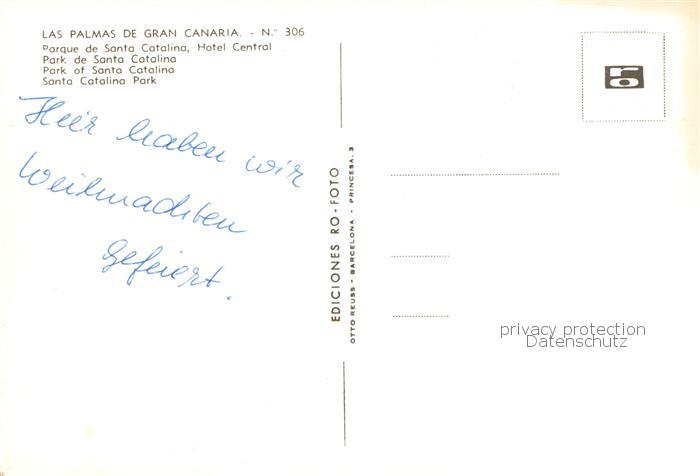 LAS PALMAS DE GRAN CANARIA. - N.° 306
Parque de Santa Catalina, Hotel Central
Park de Santa Catalina
Park of Santa Catalina
Santa Catalina Park
Hier haben wir
Weihnachten
gefeiert.
EDICIONES RO-FOTO
OTTO REUSS - BARCELONA - PRINCESA, 3
ro
privacy protection
Datenschutz